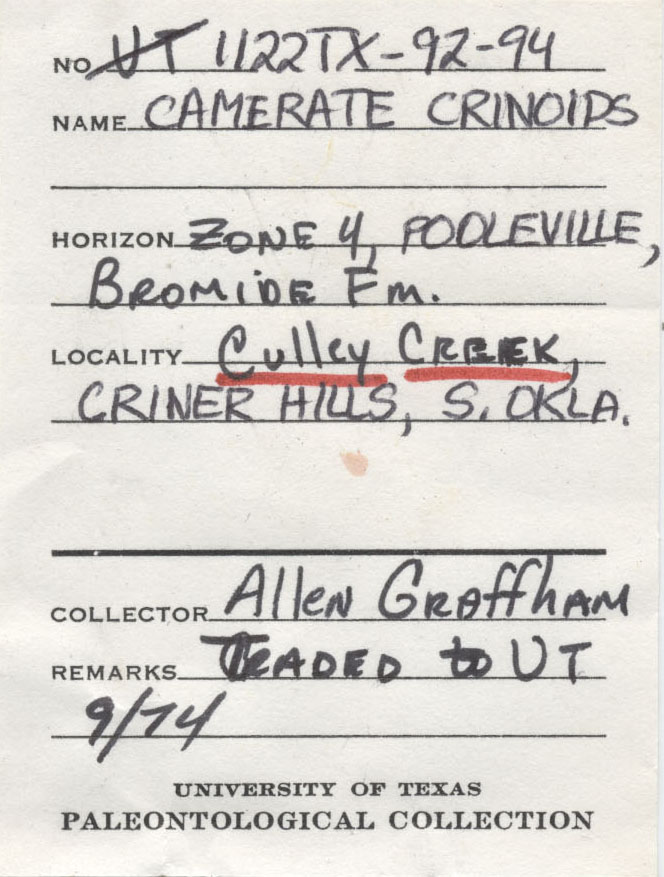 NO UT 1122TX-92-94
NAME CAMERATE CRINOIDS
HORIZON ZONE 4, POOLEVILLE,
BROMIDE Fm.
LOCALITY Culley CREEK,
CRINER HILLS, S. OKLA.
COLLECTOR Allen GRAffHAM
REMARKS TRADED to UT
9/74
UNIVERSITY OF TEXAS
PALEONTOLOGICAL COLLECTION